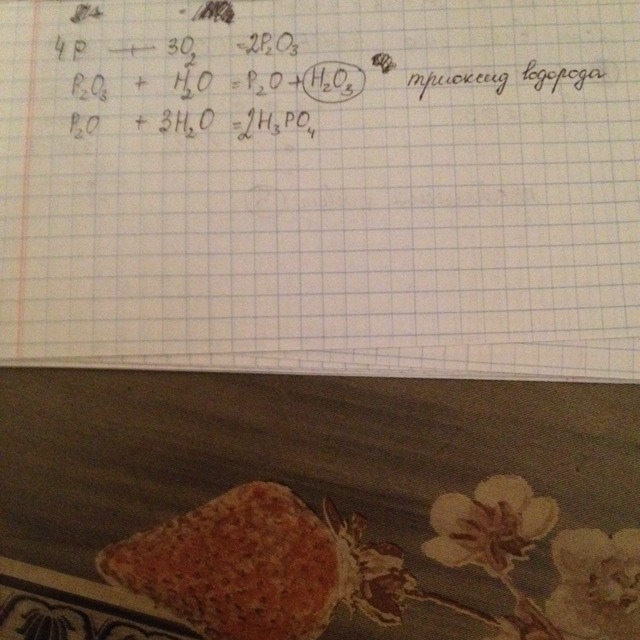 4P + 3O₂ = 2P₂O₃
P₂O₃ + H₂O = P₂O + H₂O₃ триоксид водорода
P₂O + 3H₂O = 2H₃PO₄